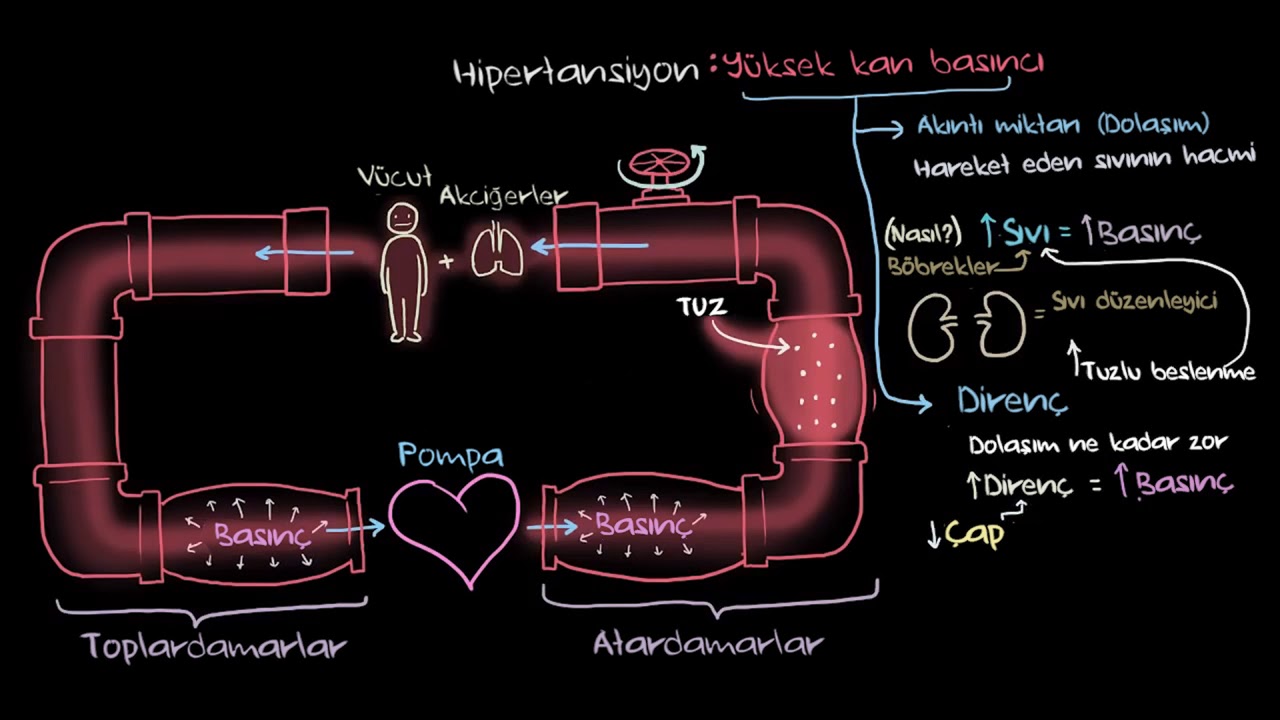 Hipertansiyon : Yüksek kan basıncı
Akıntı miktarı (Dolaşım)
Hareket eden sıvının hacmi
Vücut
Akciğerler
(Nasıl?) ↑ Sıvı = ↑ Basınç
Böbrekler
= Sıvı düzenleyici
TUZ
↑ Tuzlu beslenme
Direnç
Dolaşım ne kadar zor
↑ Direnç = ↑ Basınç
↓ Çap
Pompa
+
Basınç
Basınç
Toplardamarlar
Atardamarlar